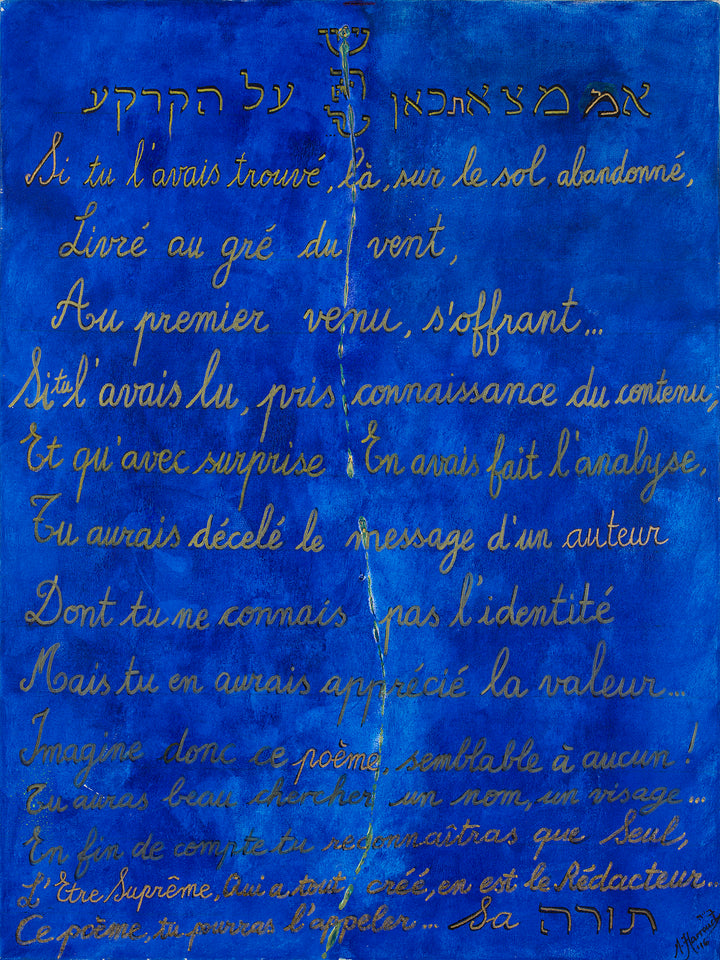 יש
רא
ל
אמ מצאת כאן על הקרקע
Si tu l'avais trouvé, là, sur le sol abandonné,
Livré au gré du vent,
Au premier venu, s'offrant...
Si tu l'avais lu, pris connaissance du contenu,
Et qu'avec surprise En avais fait l'analyse,
Tu aurais décelé le message d'un auteur
Dont tu ne connais pas l'identité
Mais tu en aurais apprécié la valeur...
Imagine donc ce poème, semblable à aucun !
Tu auras beau chercher un nom, un visage...
En fin de compte tu reconnaîtras que Seul,
L'Etre Suprême, Qui a tout créé, en est le Rédacteur...
Ce poème, tu pourras l'appeler... Sa תורה